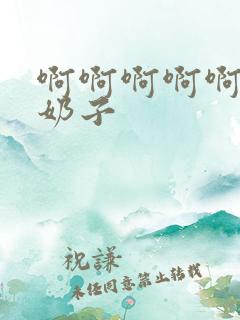 啊啊啊啊啊
奶子
祝謙
未经同意禁止转载